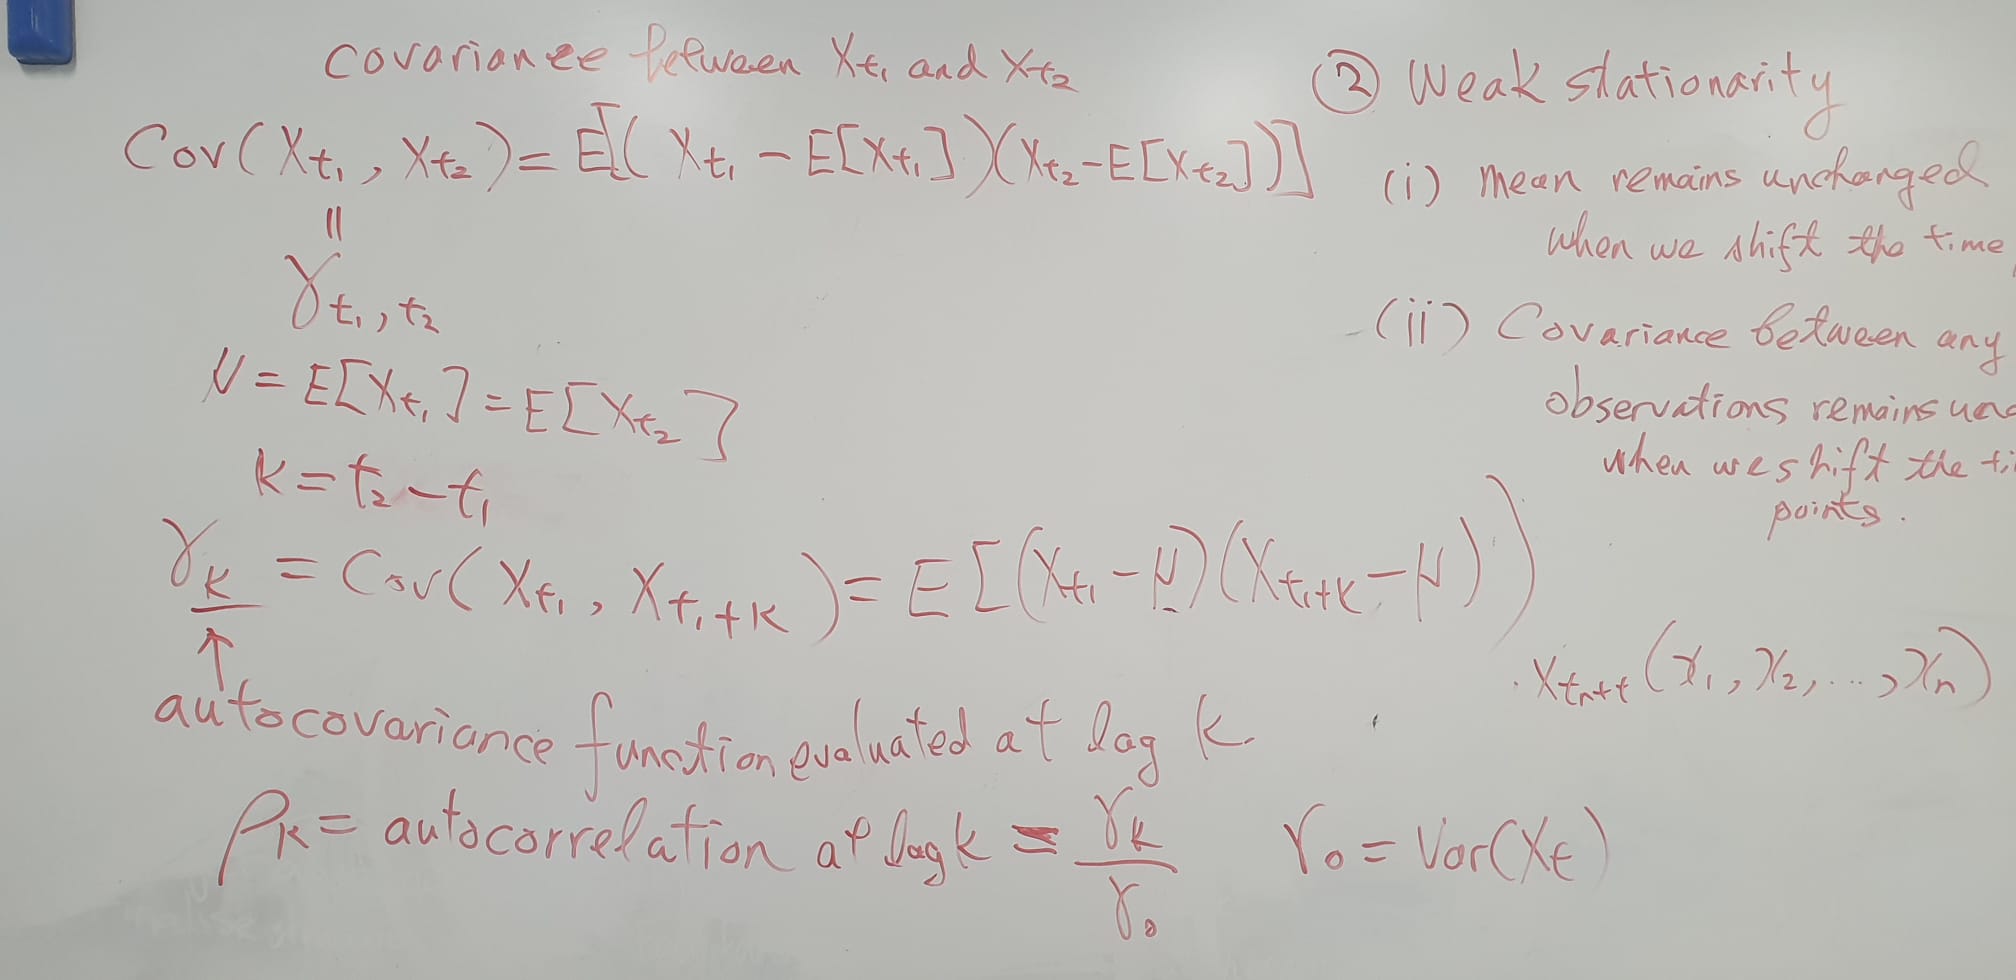 Covariance between Xt₁ and Xt₂
Cov(Xt₁, Xt₂) = E[(Xt₁ - E[Xt₁])(Xt₂ - E[Xt₂])]
||
γt₁,t₂
μ = E[Xt₁] = E[Xt₂]
k = t₂ - t₁
γk = Cov(Xt₁, Xt₁+k) = E[(Xt₁ - μ)(Xt₁+k - μ)]
↑
autocovariance function evaluated at lag k.
ρk = autocorrelation at lag k = γk/γ₀ γ₀ = Var(Xt)
② Weak stationarity
(i) mean remains unchanged
when we shift the time
(ii) Covariance between any
observations remains
when we shift the
points.
Xtn+t (x₁, x₂, ..., xn)